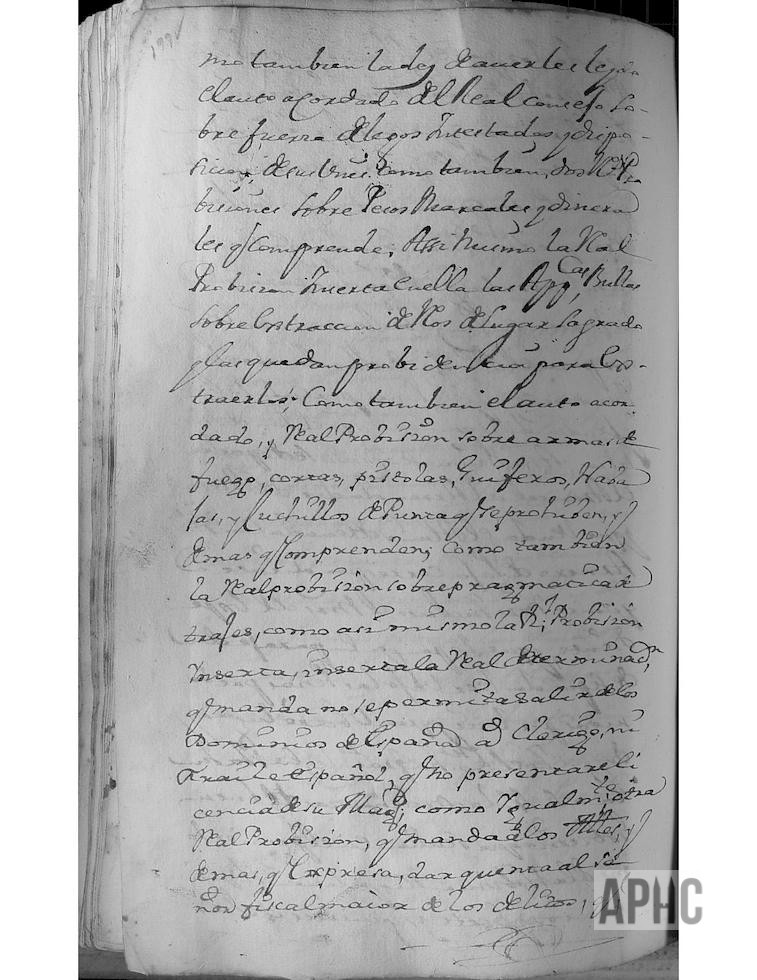 mo tambien la de auerles leydo
el auto acordado del Real consejo so-
bre fuerza de legos Yntestados y dispo-
sicion, de sus vienes, como tambien, dos R.s Pro-
biciones sobre Pesos Marcales y dinera
les q comprende; Assi mismo la Real
Probision Ynserta en ella las App.cas Bullas
Sobre Extraccion de Reos de Lugar sagrado
y las que dan probidencia para Ex-
traerlos; Como tambien el auto acor-
dado, y Real Probision sobre armas de
fuego, cortas, pistolas, Guiferos, Naba
jas, y Cuchillos de Punta q se prohiben, y
demas q comprenden; como tambien
la Real probision sobre pragmatica de
trajes, como asi mismo la R.l Probision
Ynserta, inserta la Real determinaz.n
q manda no se permita salir de los
Dominios de España a Clerigo, ni
Fraile Español, q no presentare li
cencia de su Mag.d; como Ygualm.te otra
Real Probision, q manda a los, y
demas, q Expresa, dar quenta al se
ñor fiscal maior de los delitos, q
APHC